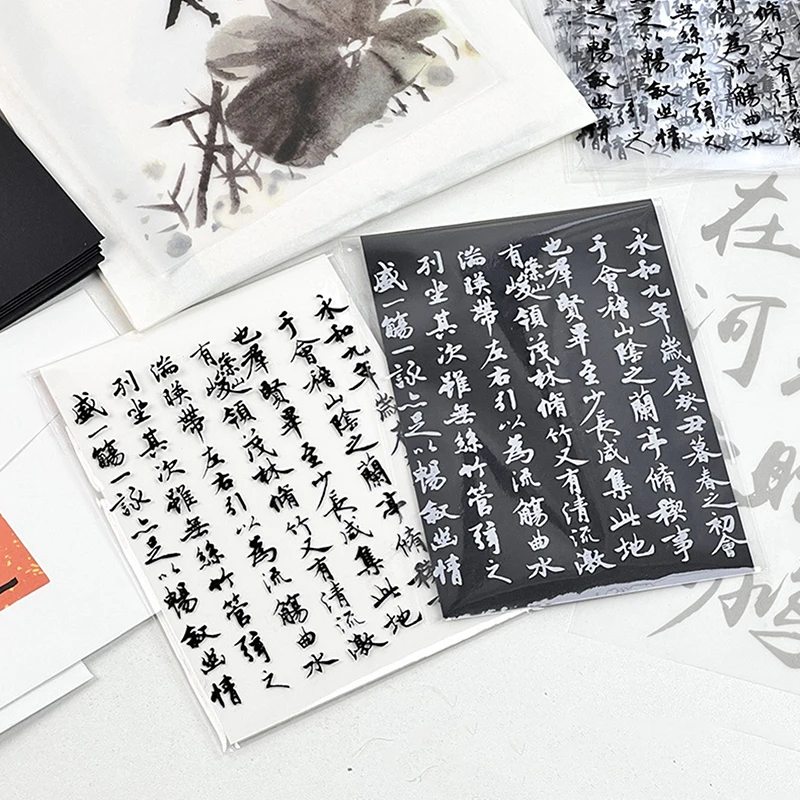 永和九年歲在癸丑暮春之初會
于會稽山陰之蘭亭脩稧事
也羣賢畢至少長咸集此地
有崇山峻領茂林脩竹又有清流激
湍暎帶左右引以為流觴曲水
列坐其次雖無絲竹管弦之
盛一觴一詠亦足以暢敘幽情
永和九年歲
于會稽山陰之蘭亭脩稧
也羣賢畢至少長咸集此地
有崇山峻領茂林脩竹又有清流激
湍暎帶左右引以為流觴曲水
列坐其次雖無絲竹管弦之
盛一觴一詠亦足以暢敘幽情
脩竹又有清流
為流觴曲水
無絲竹管弦之
以暢敘幽情
在河